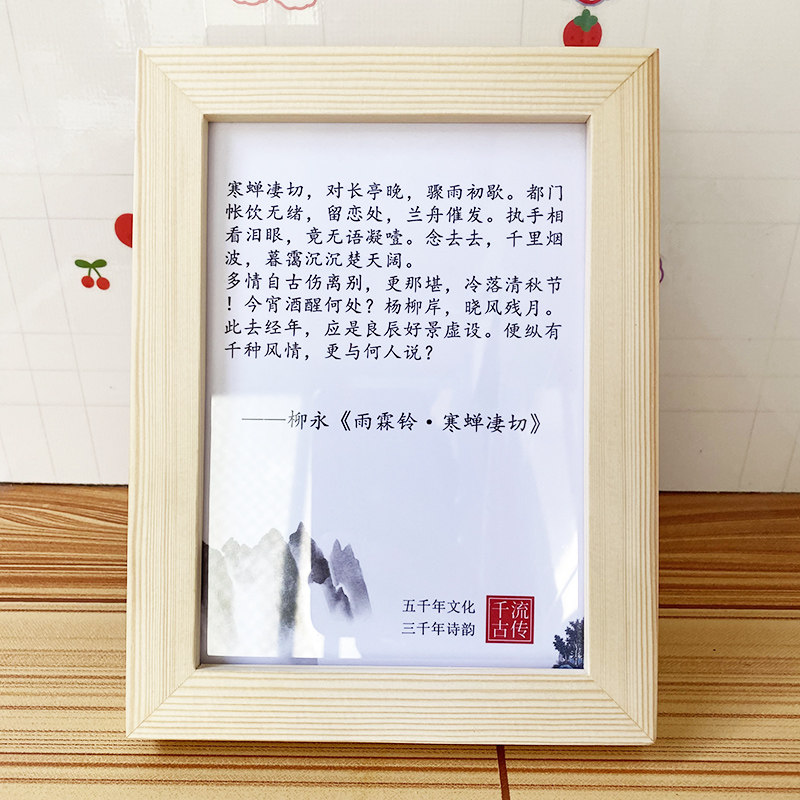 寒蝉凄切，对长亭晚，骤雨初歇。都门
帐饮无绪，留恋处，兰舟催发。执手相
看泪眼，竟无语凝噎。念去去，千里烟
波，暮霭沉沉楚天阔。
多情自古伤离别，更那堪，冷落清秋节
！今宵酒醒何处？杨柳岸，晓风残月。
此去经年，应是良辰好景虚设。便纵有
千种风情，更与何人说？
——柳永《雨霖铃·寒蝉凄切》
五千年文化
三千年诗韵
千流
古传